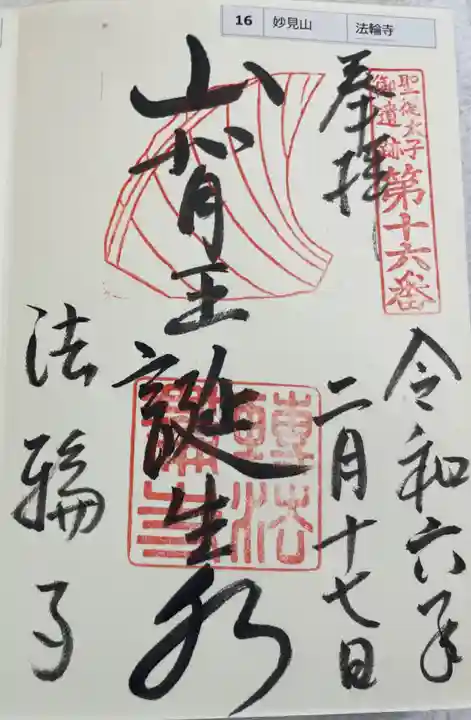 16 妙見山 法輪寺
聖徳太子
御遺跡
第十六番
奉拝
令和六年
二月十七日
山背王誕生水
轉法
法輪寺